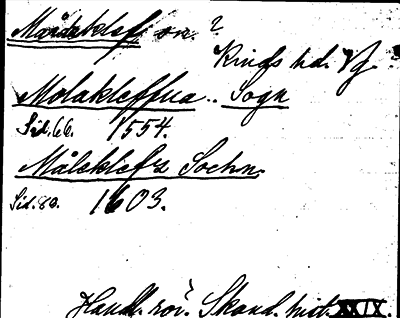 Mårdaklef sn. ?
Kinds hd. Vg.
Molakleffua .. Sogn
Sid. 66. 1554.
Måleklefs Sochn.
Sid. 80. 1603.
Handl. rör. Skand. hist. XXIX.